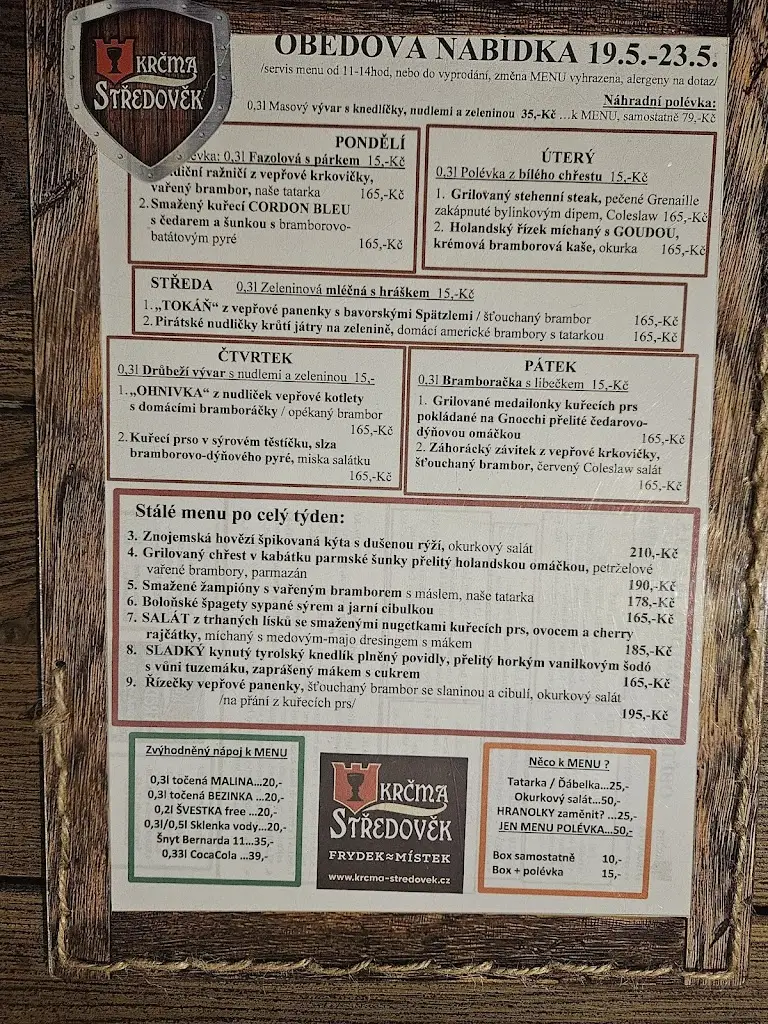 KRČMA
STŘEDOVĚK
OBĚDOVÁ NABÍDKA 19.5.-23.5.
/servis menu od 11-14hod, nebo do vyprodání, změna MENU vyhrazena, alergeny na dotaz/
Náhradní polévka:
0,3l Masový vývar s knedlíčky, nudlemi a zeleninou 35,-Kč ...k MENU, samostatně 79,-Kč
PONDĚLÍ
0,3l Fazolová s párkem 15,-Kč
ražničí z vepřové krkovičky,
vařený brambor, naše tatarka 165,-Kč
2. Smažený kuřecí CORDON BLEU
s čedarem a šunkou s bramborovo-
batátovým pyré 165,-Kč
ÚTERÝ
0,3l Polévka z bílého chřestu 15,-Kč
1. Grilovaný stehenní steak, pečené Grenaille
zakápnuté bylinkovým dipem, Coleslaw 165,-Kč
2. Holandský řízek míchaný s GOUDOU,
krémová bramborová kaše, okurka 165,-Kč
STŘEDA 0,3l Zeleninová mléčná s hráškem 15,-Kč
1. „TOKÁŇ“ z vepřové panenky s bavorskými Spätzlemi / šťouchaný brambor 165,-Kč
2. Pirátské nudličky krůtí játry na zelenině, domácí americké brambory s tatarkou 165,-Kč
ČTVRTEK
0,3l Drůbeží vývar s nudlemi a zeleninou 15,-
1. „OHNIVKA“ z nudliček vepřové kotlety
s domácími bramboráčky / opékaný brambor
165,-Kč
2. Kuřecí prso v sýrovém těstíčku, slza
bramborovo-dýňového pyré, miska salátku
165,-Kč
PÁTEK
0,3l Bramboračka s libečkem 15,-Kč
1. Grilované medailonky kuřecích prs
pokládané na Gnocchi přelité čedarovo-
dýňovou omáčkou 165,-Kč
2. Záhorácký závitek z vepřové krkovičky,
šťouchaný brambor, červený Coleslaw salát
165,-Kč
Stálé menu po celý týden:
3. Znojemská hovězí špikovaná kýta s dušenou rýží, okurkový salát 210,-Kč
4. Grilovaný chřest v kabátku parmské šunky přelitý holandskou omáčkou, petrželové
vařené brambory, parmazán 190,-Kč
5. Smažené žampióny s vařeným bramborem s máslem, naše tatarka 178,-Kč
6. Boloňské špagety sypané sýrem a jarní cibulkou 165,-Kč
7. SALÁT z trhaných lísků se smaženými nugetkami kuřecích prs, ovocem a cherry
rajčátky, míchaný s medovým-majo dresingem s mákem 185,-Kč
8. SLADKÝ kynutý tyrolský knedlík plněný povidly, přelitý horkým vanilkovým šodó
s vůni tuzemáku, zaprášený mákem s cukrem 165,-Kč
9. Řízečky vepřové panenky, šťouchaný brambor se slaninou a cibulí, okurkový salát
/na přání z kuřecích prs/ 195,-Kč
Zvýhodněný nápoj k MENU
0,3l točená MALINA...20,-
0,3l točená BEZINKA ...20,-
0,2l ŠVESTKA free ...20,-
0,3l/0,5l Sklenka vody...20,-
Šnyt Bernarda 11...35,-
0,33l CocaCola ...39,-
KRČMA
STŘEDOVĚK
FRYDEK≈MÍSTEK
www.krcma-stredovek.cz
Něco k MENU ?
Tatarka / Ďábelka...25,-
Okurkový salát...50,-
HRANOLKY zaměnit? ...25,-
JEN MENU POLÉVKA...50,-
Box samostatně 10,-
Box + polévka 15,-